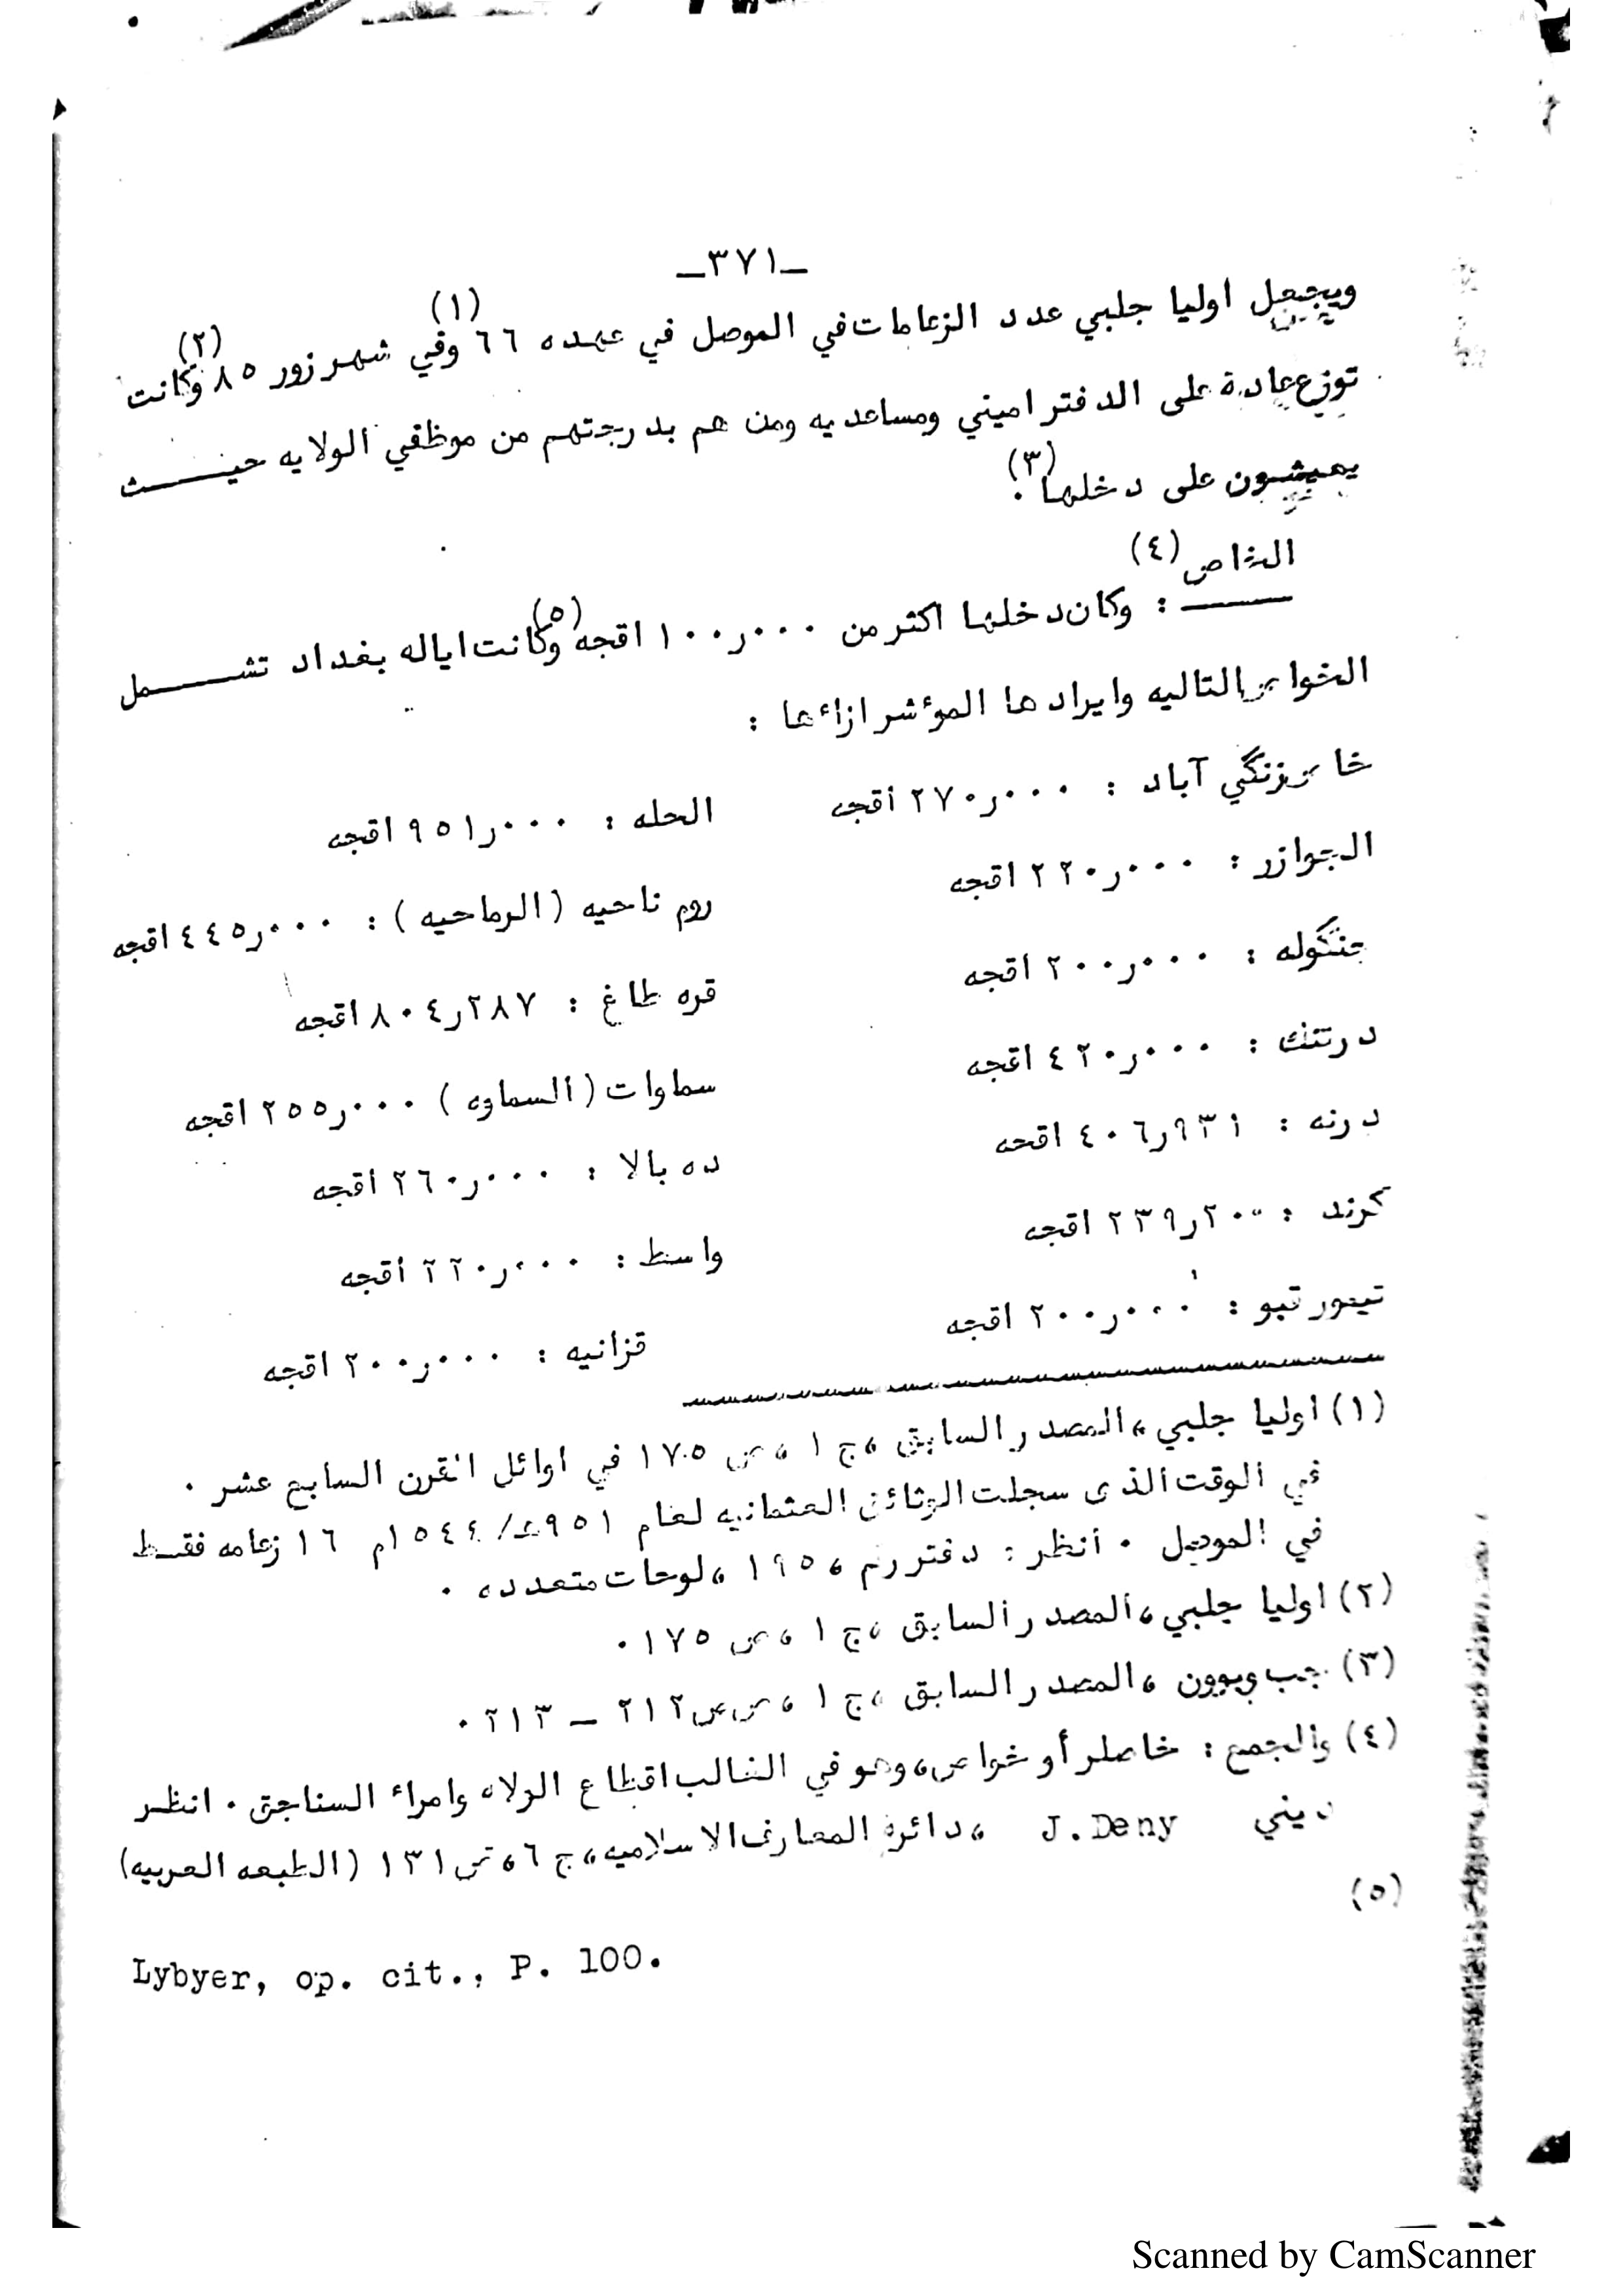 ـ٣٧١ـ
ويجعل اوليا جلبي عدد الزعامات في الموصل في عهده ٦٦(١) وفي شهرزور ٨٥(٢) وكانت
توزع عادة على الدفتر اميني ومساعديه ومن هم بدرجتهم من موظفي الولايه حيــــث
يعيشون على دخلها(٣).
الخاص(٤)
: وكان دخلها اكثر من ١٠٠ر٠٠٠ اقجه(٥) وكانت اياله بغداد تشـــمل
الخواص التاليه وايرادها المؤشر ازائها :
خاص زنگي آباد : ٢٧٠ر٠٠٠ اقجه الحله : ٩٥١ر٠٠٠ اقجه
الجوازر : ٢٢٠ر٠٠٠ اقجه روم ناحيه (الرماحيه) : ٤٤٥ر٠٠٠ اقجه
جنگوله : ٢٠٠ر٠٠٠ اقجه قره طاغ : ٨٠٤ر٢٨٧ اقجه
درتنك : ٤٢٠ر٠٠٠ اقجه سماوات (السماوه) ٢٥٥ر٠٠٠ اقجه
درنه : ٤٠٦ر٩٣١ اقجه ده بالا : ٢٦٠ر٠٠٠ اقجه
كرند : ٢٣٩ر٢٠٠ اقجه واسط : ٢٢٠ر٠٠٠ اقجه
تيمور تبو : ٢٠٠ر٠٠٠ اقجه قزانيه : ٢٠٠ر٠٠٠ اقجه
(١) اوليا جلبي، المصدر السابق، ج ١، ص ١٧٥ في اوائل القرن السابع عشر .
في الوقت الذى سجلت الوثائق العثمانيه لعام ٩٥١هـ/ ١٥٤٤م ١٦ زعامه فقـط
في الموصل . أنظر : دفتر رقم، ١٩٥، لوحات متعدده .
(٢) اوليا جلبي، المصدر السابق، ج ١، ص ١٧٥ .
(٣) جب وبوون، المصدر السابق، ج ١، ص ص ٢١٢ ـ ٢١٣ .
(٤) والجمع : خاصلر أو خواص، وهو في الغالب اقطاع الولاه وامراء السناجق . انظـر
ديني J.Deny ، دائرة المعارف الاسلاميه، ج ٦، ص ١٣١ (الطبعه العربيه)
(٥)
Lybyer, op. cit., P. 100.
Scanned by CamScanner